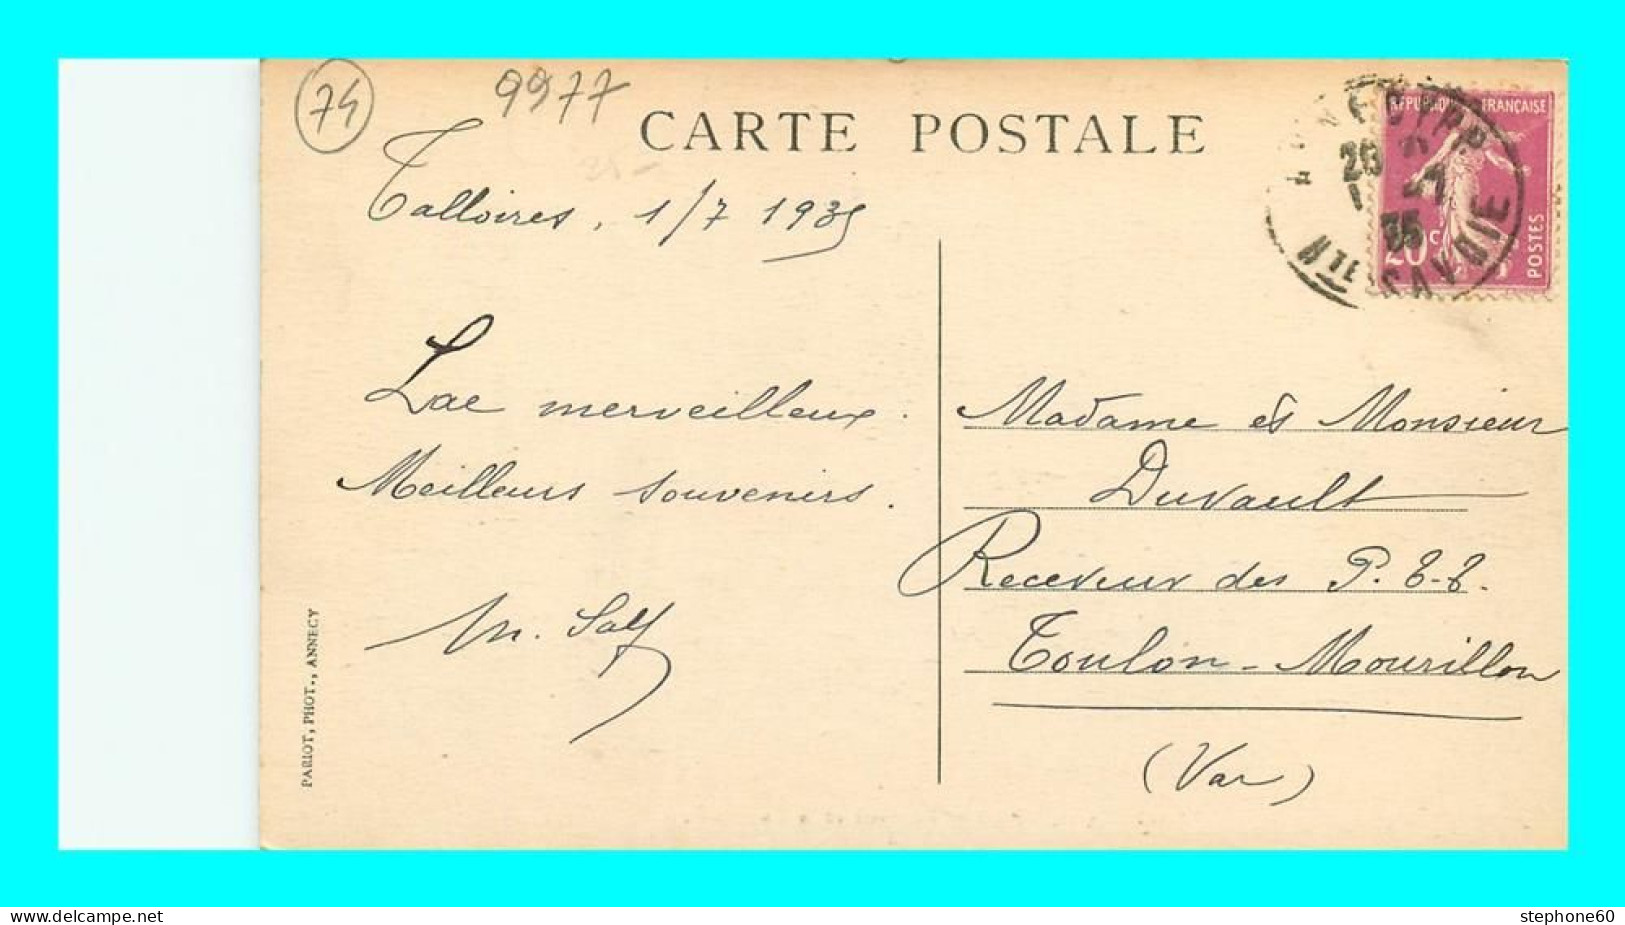 74
9977
CARTE POSTALE
RÉPUBLIQUE FRANÇAISE
20c
POSTES
35
Hte SAVOIE
Talloires, 1/7 1935
Lac merveilleux.
Meilleurs souvenirs.
PARIOT, PHOT., ANNECY
Madame et Monsieur
Duvault
Receveur des P.T.T.
Toulon-Mourillon
(Var)
www.delcampe.net
stephone60